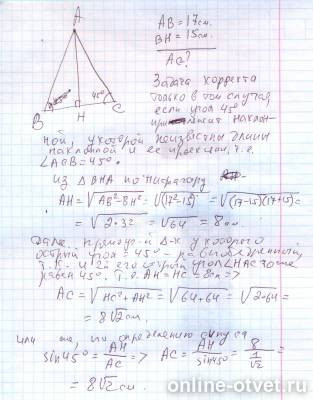 A
45°
B
H
C
AB = 17см.
BH = 15см.
AC?
Задача корректа
только в том случае,
если угол 45°
наклон-
ной, у которой неизвестны длины
наклонной и ее проекции, т.е.
∠ACB = 45°.
из ΔBHA по Пифагору
AH = √AB²-BH² = √(17²-15²) = √(17-15)(17+15) =
= √2·32 = √64 = 8см.
Далее прямоуг-й Δ-к у которого
острый угол = 45° - равнобедренный,
т.к. и 2й его острый угол ∠HAC тоже
равен 45°. т.о. AH = HC = 8см =>
AC = √HC²+AH² = √64+64 = √2·64 =
= 8√2 см.
или же, по определению синуса
sin45° = AH/AC => AC = AH/sin45° = 8/(1/√2) =
= 8√2 см.
online-otvet.ru